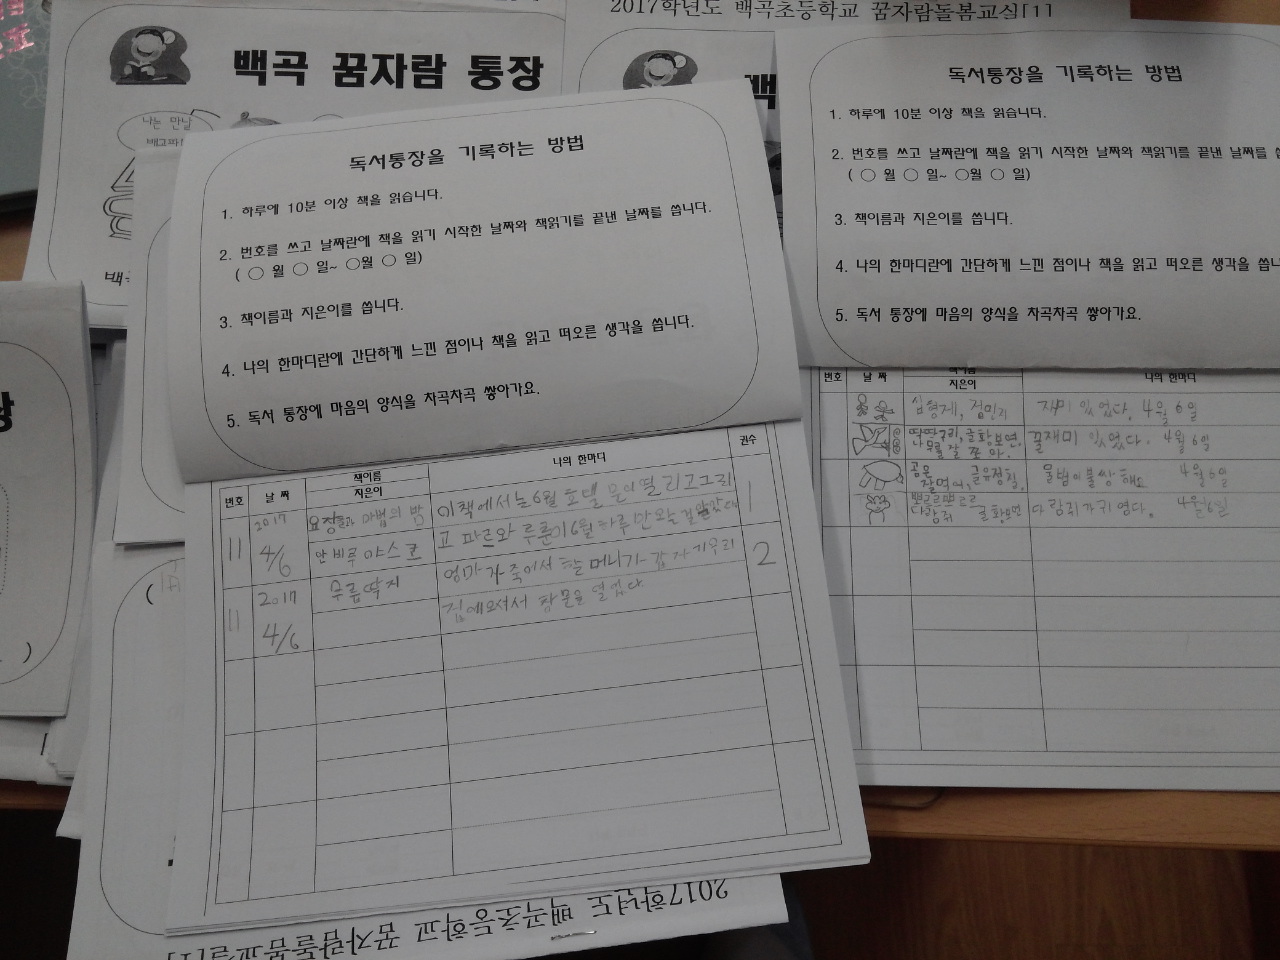 2017학년도 백곡초등학교 꿈자람돌봄교실[1]
백곡 꿈자람 통장
나는 만날
백
독서통장을 기록하는 방법
1. 하루에 10분 이상 책을 읽습니다.
2. 번호를 쓰고 날짜란에 책을 읽기 시작한 날짜와 책읽기를 끝낸 날짜를 씁니다.
( ○ 월 ○ 일~ ○월 ○ 일)
3. 책이름과 지은이를 씁니다.
4. 나의 한마디란에 간단하게 느낀 점이나 책을 읽고 떠오른 생각을 씁니다.
5. 독서 통장에 마음의 양식을 차곡차곡 쌓아가요.
번호 날 짜 책이름 지은이 나의 한마디 권수
11 2017 4/6
요정들과 마법의 밤
안비루 야스코
이책에서는 6월 호텔 문이 열리고그리
고 파르와 루룬이 6월 하루만 오는
1
11 2017 4/6
무릎딱지
엄마가 죽어서 할머니가 갑자기우리
집에오셔서 창문을 열었다
2
독서통장을 기록하는 방법
1. 하루에 10분 이상 책을 읽습니다.
2. 번호를 쓰고 날짜란에 책을 읽기 시작한 날짜와 책읽기를 끝낸 날짜를
( ○ 월 ○ 일~ ○월 ○ 일)
3. 책이름과 지은이를 씁니다.
4. 나의 한마디란에 간단하게 느낀 점이나 책을 읽고 떠오른 생각을 씁니
5. 독서 통장에 마음의 양식을 차곡차곡 쌓아가요.
번호 날 짜 책이름 지은이 나의 한마디
재미 있었다. 4월 6일
글황보연.
꿀재미 있었다. 4월 6일
불쌍해요 4월 6일
다람쥐 글황보연
다람쥐가 귀엽다. 4월 6일
2017학년도 백곡초등학교 꿈자람돌봄교실[1]